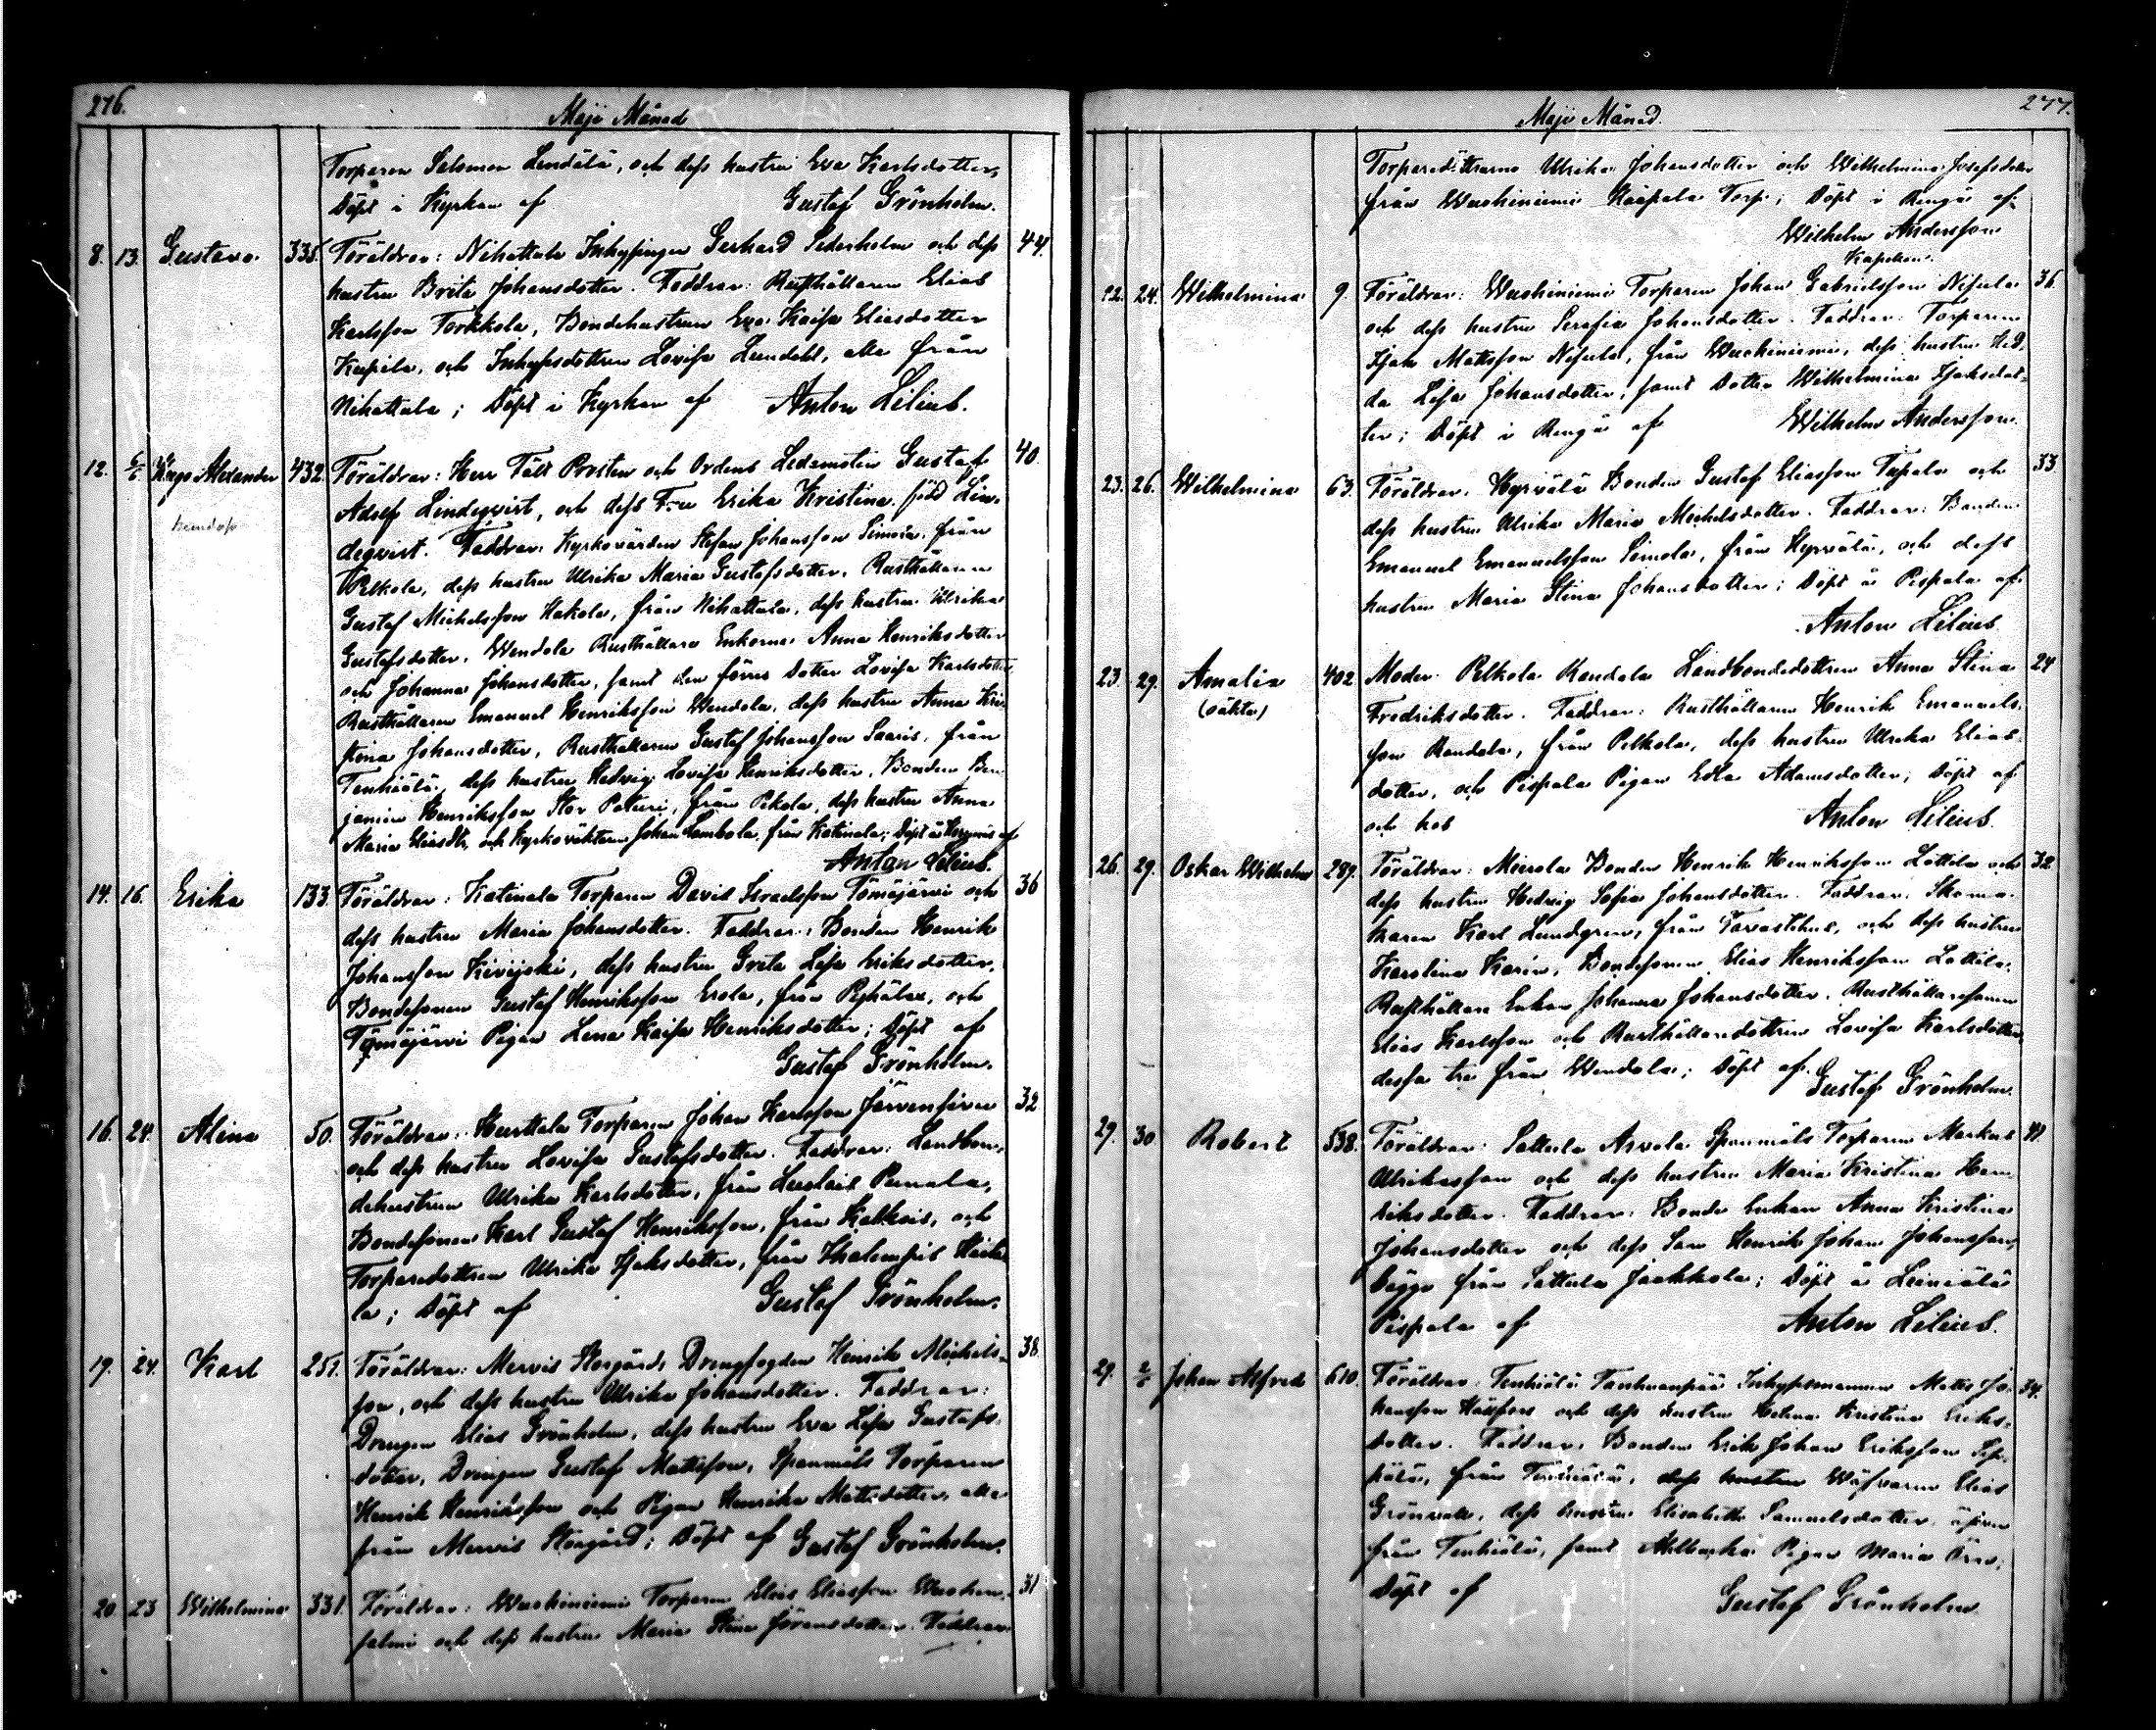 276.
Maji Månad
Torparen Salomon Lendälä, och dess hustru Eva Karlsdotter,
Döpt i Kyrkan af Gustaf Grönholm.
8. 13. Gustava. 335. Föräldrar: Nihattula Inhysingen Gerhard Sederholm och dess 44.
hustru Brita Johansdotter. Faddrar: Rusthållaren Elias
Karlsson Torkkola, Bondehustrun Eva Kaisa Eliasdotter
Kupila, och Inhysesdottren Lovisa Lundahl, alla från
Nihattula; Döpt i Kyrkan af Anton Lilius.
12. 6/6 Hugo Alexander 432. Föräldrar: Herr Fält Prosten och Ordens Ledamoten Gustaf 40.
Adolf Lindeqvist, och dess Fru Erika Kristina född Lin-
deqvist. Faddrar: Kyrkovärden Stefan Johansson Simola, från
Pelkola, dess hustru Ulrika Maria Gustafsdotter, Rusthållaren
Gustaf Michelsson Hakola, från Nihattula, dess hustru Ulrika
Gustafsdotter, Wendola Rusthållare Enkorna Anna Henriksdotter
och Johanna Johansdotter, samt den förres Dotter Lovisa Karlsdotter
Rusthållaren Emanuel Henriksson Wendola, dess hustru Anna Kri-
stina Johansdotter, Rusthållaren Gustaf Johansson Saaris, från
Tenhiälä, dess hustru Hedvig Lovisa Henriksdotter, Bonden Ben-
jamin Henriksson Stor Paturi, från Pekola, dess hustru Anna
Maria Eliasdtr, och Kyrkoväktaren Johan Lambola, från Katinala; Döpt å af
Anton Lilius.
14. 16. Erika 133. Föräldrar: Katinala Torparen David Israelsson Tömäjärvi och 36
dess hustru Maria Johansdotter. Faddrar: Bonden Henrik
Johansson Kivijoki, dess hustru Greta Lisa Eriksdotter,
Bondesonen Gustaf Henriksson Erola, från, och
Tömäjärvi Pigan Lena Kaisa Henriksdotter; Döpt af
Gustaf Grönholm.
16. 24. Alina 50. Föräldrar: Hurttala Torparen Johan Karlsson Järvensivu 32
och dess hustru Lovisa Gustafsdotter. Faddrar: Landbon-
dehustrun Ulrika Karlsdotter, från Leiniäis Punala,
Bondesonen Karl Gustaf Henriksson, från Kalkois, och
Torparedottren Ulrika Isaksdotter, från Haiko-
la; Döpt af Gustaf Grönholm.
19. 24. Karl 251. Föräldrar: Mervis Storgårds Drengfogden Henrik Michels- 38.
son, och dess hustru Ulrika Johansdotter. Faddrar:
Drengen Elias Grönholm, dess hustru Eva Lisa Gustafs-
dotter, Drengen Gustaf Mattsson, Spanmåls Torparen
Henrik Henriksson och Pigan Henrika Mattsdotter, alla
från Mervis Storgård; Döpt af Gustaf Grönholm.
20. 23 Wilhelmina 331. Föräldrar: Wuohiniemi Torparen Elias Eliasson Wuohen- 31
salmi och dess hustru Maria Stina Göransdotter. Faddrar
277.
Maji Månad.
Torparedöttrarna Ulrika Johansdotter och Wilhelmina Josefsdotter
från Wuohiniemi Kaapala Torp; Döpt i Rengo af
Wilhelm Andersson
Kapellan.
12. 24. Wilhelmina 9. Föräldrar: Wuohiniemi Torparen Johan Gabrielsson Nisula 36
och dess hustru Serafia Johansdotter. Faddrar: Torparen
Isak Mattsson Nisula, från Wuohiniemi, dess hustru Hed-
da Lisa Johansdotter, samt Dotter Wilhelmina Isaksdot-
ter; Döpt i Rengo af Wilhelm Andersson.
23. 26. Wilhelmina 63. Föräldrar: Hyrvälä Bonden Gustaf Eliasson Tupala och 33
dess hustru Ulrika Maria Michelsdotter. Faddrar: Bonden
Emanuel Emanuelsson Simola, från Hyrvälä, och dess
hustru Maria Stina Johansdotter; Döpt å Pispala af
Anton Lilius.
23. 29. Amalia 402 Moder: Pelkola Randala Landbondedottren Anna Stina 24
(oäkta) Fredriksdotter. Faddrar: Rusthållaren Henrik Emanuels-
son Randala, från Pelkola, dess hustru Ulrika Elias-
dotter, och Pispala Pigan Edla Adamsdotter; Döpt af
och hos Anton Lilius.
26. 29. Oskar Wilhelm 289. Föräldrar: Mierola Bonden Henrik Henriksson Lottila och 32
dess hustru Hedvig Sofia Johansdotter. Faddrar: Skoma-
karen Karl Lundgren, från Tavastehus, och dess hustru
Karolina Karin, Bondesonen Elias Henriksson Lottila,
Rusthållare Enkan Johanna Johansdotter, Rusthållaresonen
Elias Karlsson och Rusthållaredottren Lovisa Karlsdotter,
dessa tre från Wendola; Döpt af Gustaf Grönholm.
29. 30 Robert 538. Föräldrar: Sattula Arvola Spanmåls Torparen Markus 41
Ulriksson och dess hustru Maria Kristina Hen-
riksdotter. Faddrar: Bonde Enkan Anna Kristina
Johansdotter och dess Son Henrik Johan Johansson,
begge från Sattula Jaakkola; Döpt å Leiniälä
Pispala af Anton Lilius.
29. 2/6 Johan Alfred 610. Föräldrar: Tenhiälä Tanhuanpää Inhysesmannen Matts Jo- 34.
hansson Hällfors och dess hustru Helena Kristina Eriks-
dotter. Faddrar: Bonden Erik Johan Eriksson Sep-
pälä, från Tenhiälä, dess hustru Wäfvaren Elias
Grönvall, dess hustru Elisabeth Samuelsdotter, äfven
från Tenhiälä, samt Pigan Maria;
Döpt af Gustaf Grönholm